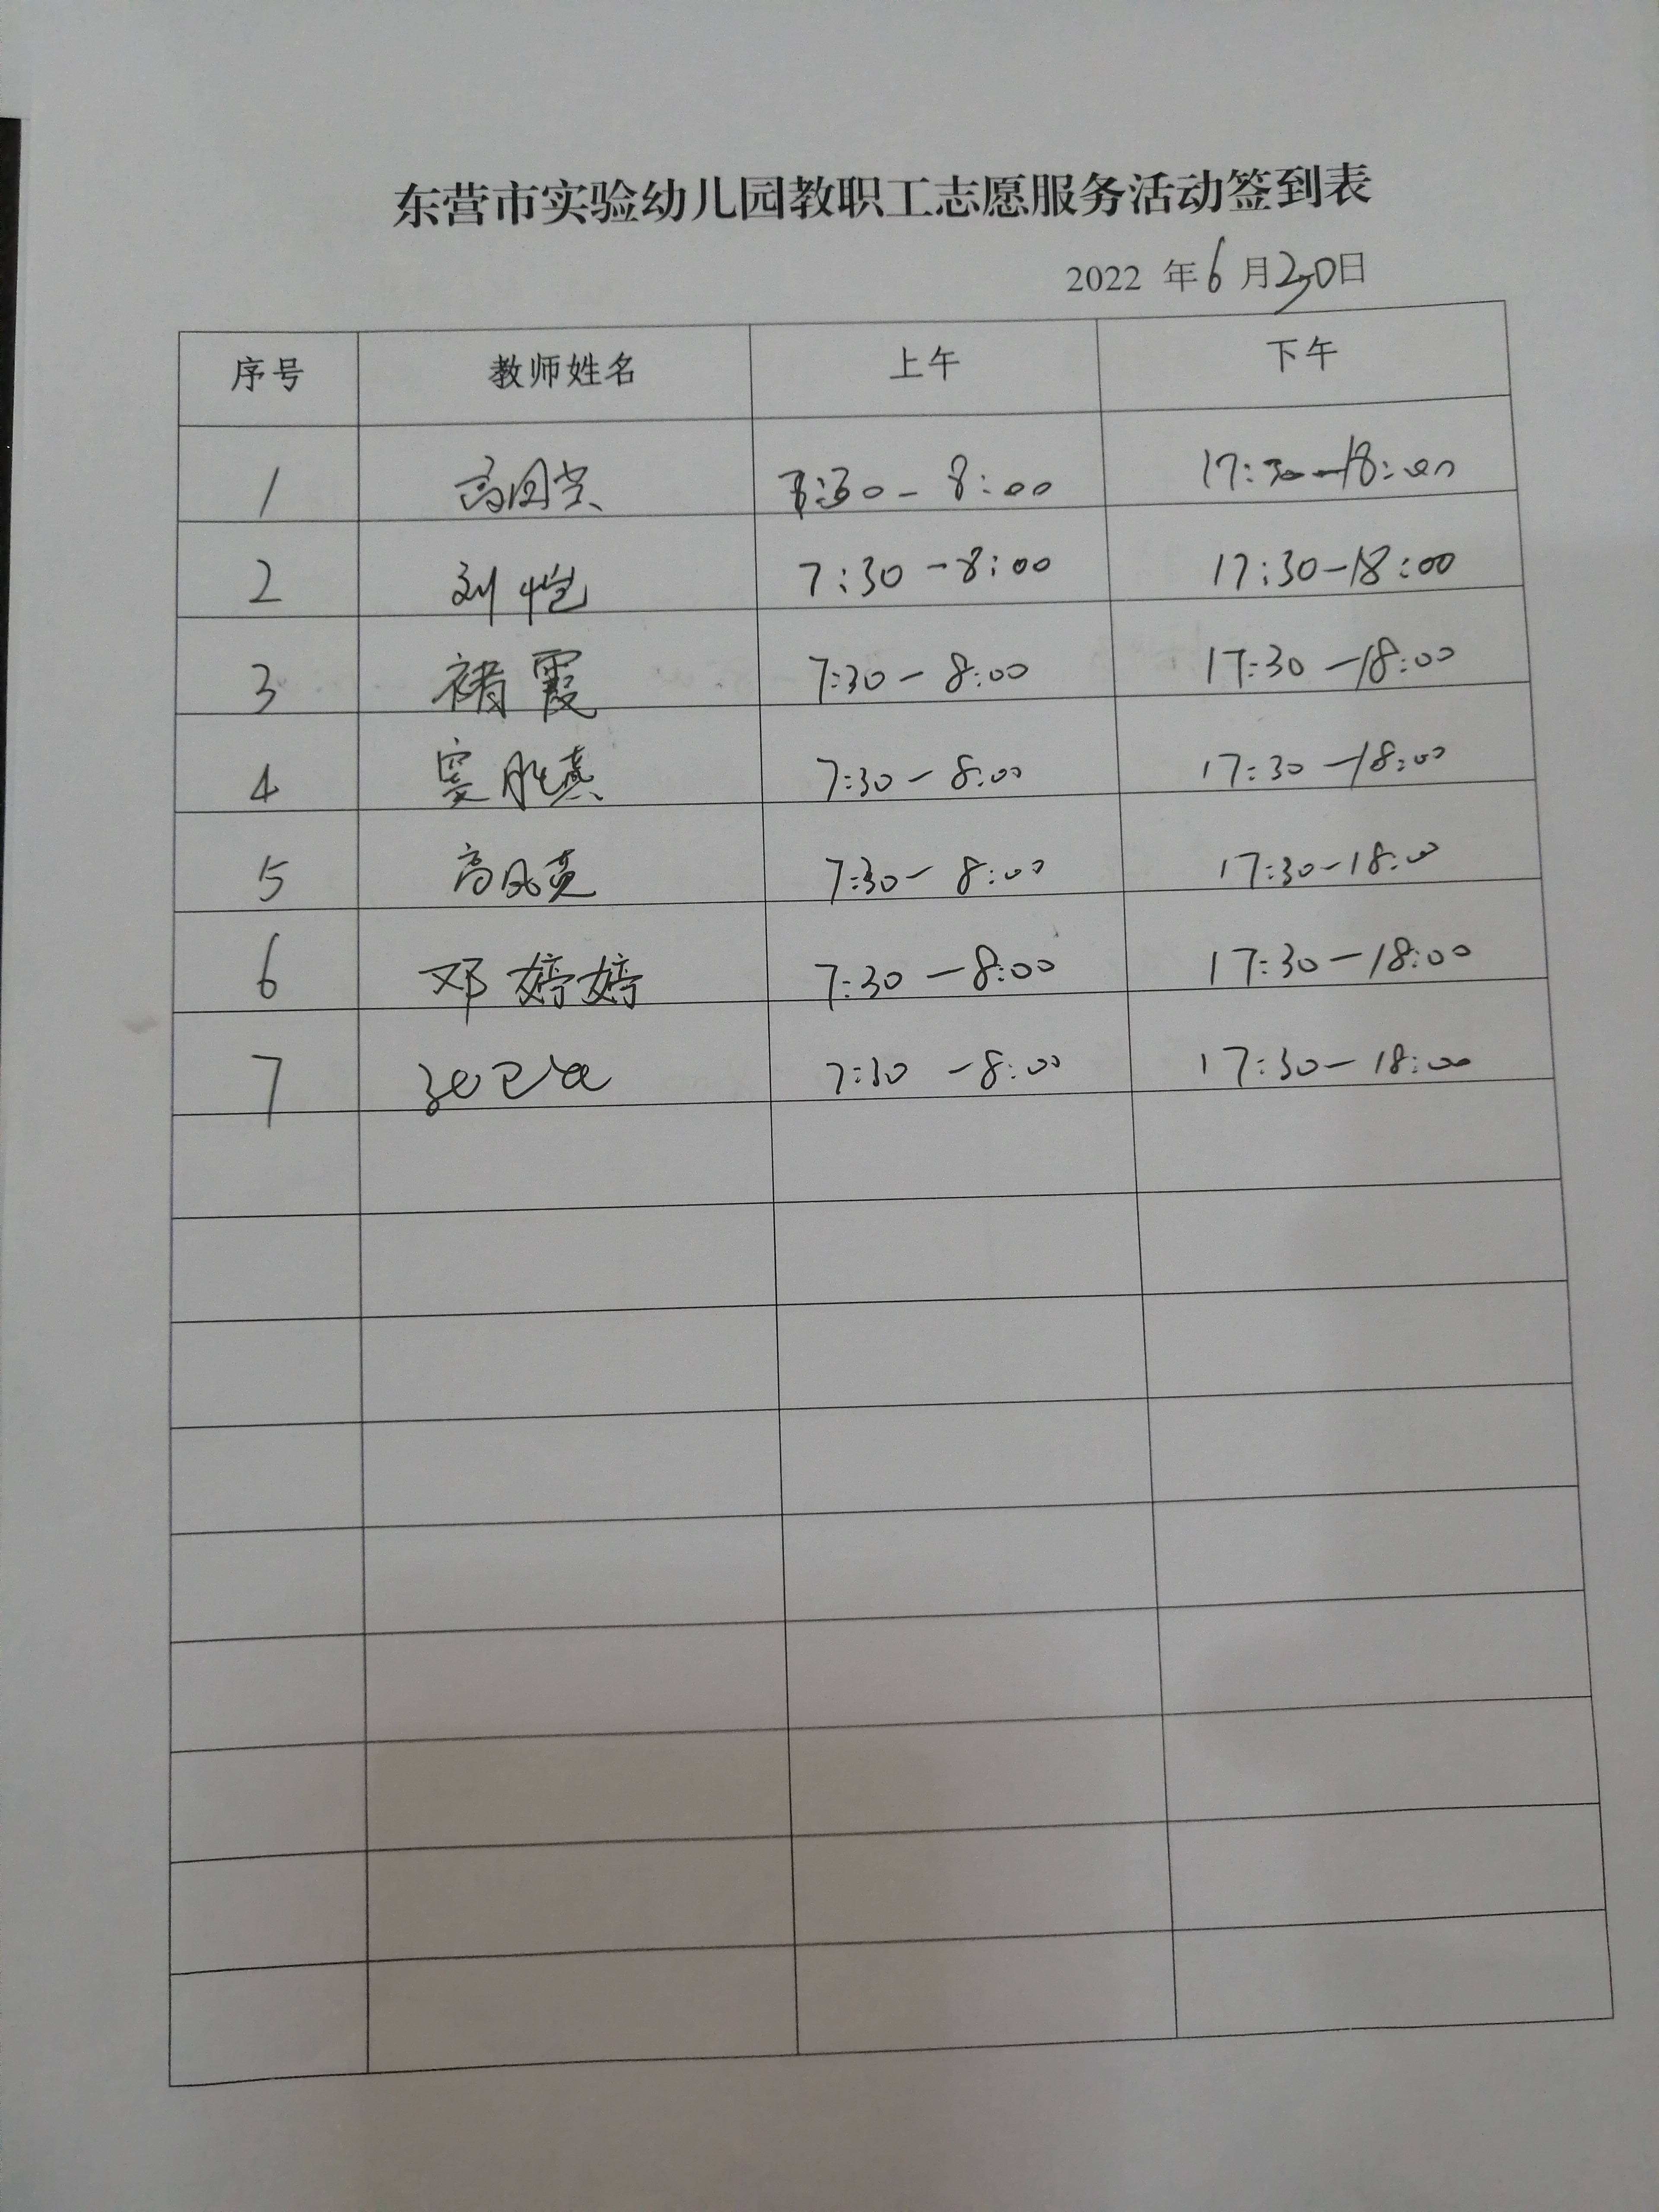 东营市实验幼儿园教职工志愿服务活动签到表
2022 年6月30日
序号 教师姓名 上午 下午
1 高 7:30-8:00 17:30-18:00
2 刘恺 7:30-8:00 17:30-18:00
3 褚霞 7:30-8:00 17:30-18:00
4 窦胜燕 7:30-8:00 17:30-18:00
5 高凤英 7:30-8:00 17:30-18:00
6 邓婷婷 7:30-8:00 17:30-18:00
7 7:30-8:00 17:30-18:00